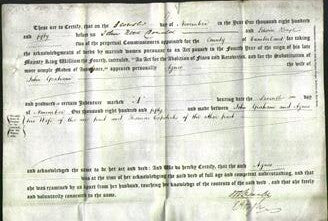 These are to Certify, that on the Seventh day of November in the Year One thousand eight hundred
and fifty before us John and
two of the perpetual Commissioners appointed for the County of Cumberland for taking the
acknowledgments of deeds by married women pursuant to an Act passed in the Fourth Year of the reign of his late
Majesty King William the Fourth, intituled, "An Act for the Abolition of Fines and Recoveries, and for the Substitution of
more simple Modes of Assurance," appeared personally Agnes the wife of
John Graham
and produced a certain Indenture marked A bearing date the Seventh day of
November One thousand eight hundred and fifty and made between John Graham and Agnes
his Wife of the one part and Thomas of the other part
and acknowledged the same to be her act and deed: And We do hereby Certify, that the said Agnes
was at the time of her acknowledging the said deed of full age and competent understanding, and that
she was examined by us apart from her husband, touching her knowledge of the contents of the said deed, and that she freely
and voluntarily consented to the same.